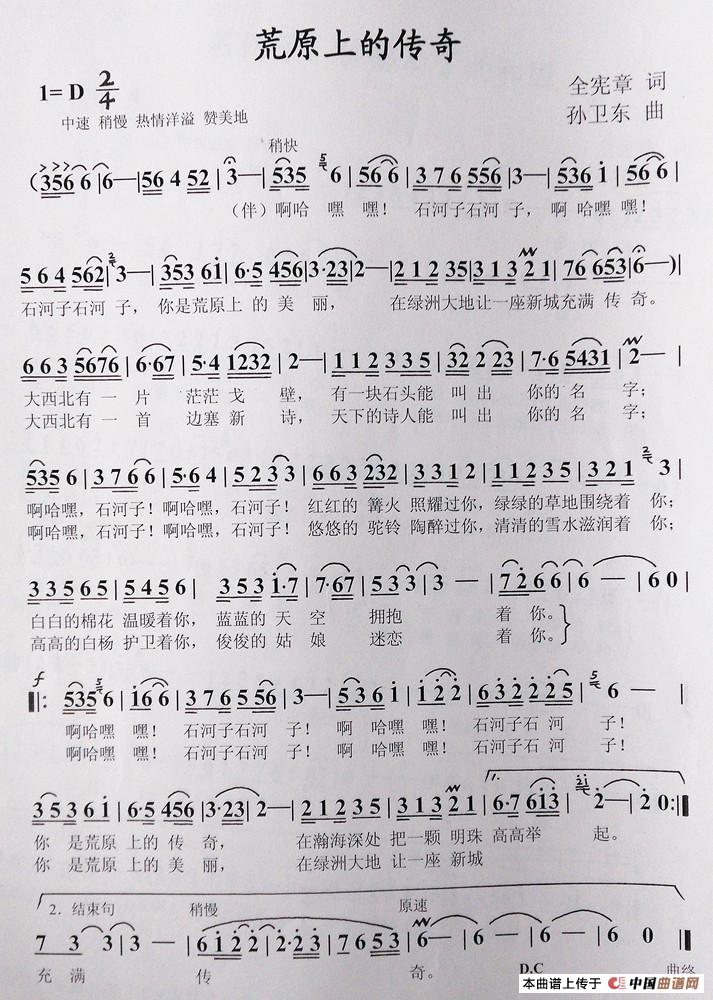 荒原上的传奇
1= D 2/4
全宪章 词
中速 稍慢 热情洋溢 赞美地
孙卫东 曲
稍快
(356 6 6 | 6— | 56 4 52 | 3— | 535 5 6 | 56 6 | 3 7 6 556 | 3— | 536 i | 56 6 |
（伴）啊哈 嘿 嘿！ 石河子石河 子， 啊 哈嘿 嘿！
5 6 4 562 | 2 3— | 353 6i | 6·5 456 | 3·23 | 2— | 2 1 2 3 5 | 3 1 3 2 1 | 76 6 53 | 6—) |
石河子石河 子， 你是荒原上 的 美 丽， 在绿洲大地让一座新城充满 传 奇。
6 6 3 5676 | 6·67 | 5·4 1232 | 2— | 1 1 2 3 3 5 | 32 2 23 | 7·6 5431 | 2— |
大西北有 一 片 茫茫 戈 壁， 有一块石头能 叫 出 你的 名 字；
大西北有 一 首 边塞 新 诗， 天下的诗人能 叫 出 你的 名 字；
535 6 | 3 7 6 6 | 5·6 4 | 5 2 3 3 | 6 6 3 232 | 3 3 1 2 | 1 1 2 3 5 | 3 2 1 2 3 |
啊哈嘿，石河子！啊哈嘿，石河子！ 红红的 篝火 照耀过你，绿绿的草地围绕着 你；
啊哈嘿，石河子！啊哈嘿，石河子！ 悠悠的 驼铃 陶醉过你，清清的雪水滋润着 你；
3 3 5 6 5 | 5 4 5 6 | 3 5 3 i·7 | 7·67 | 5 3 3 | 3 — | 7 2 6 6 | 6 — | 6 0 |
白白的棉花 温暖着你， 蓝蓝的 天 空 拥抱 着 你。
高高的白杨 护卫着你， 俊俊的 姑 娘 迷恋 着 你。
f
‖: 535 5 6 | i 6 6 | 3 7 6 5 56 | 3— | 5 3 6 i | i 2 2 | 6 3 2 2 2 5 | 5 6 — |
啊哈嘿 嘿！ 石河子石河 子！ 啊 哈嘿 嘿！ 石河子石 河 子！
啊哈嘿 嘿！ 石河子石河 子！ 啊 哈嘿 嘿！ 石河子石 河 子！
1.
3 5 3 6 i | 6·5 456 | 3·23 | 2— | 2 1 2 3 5 | 3 1 3 2 1 | 6·7 6i3 | 2i 2— | 2 0 :‖
你 是荒原 上 的 传 奇， 在瀚海深处 把一颗 明珠 高高举 起。
你 是荒原 上 的 美 丽， 在绿洲大地 让一座 新城
2. 结束句 稍慢 原速
7 3 3 | 3 — | 6 i 2 2 | 2·2 3 | 7 6 5 3 | 6— | 6 — | 6 — | 6 0 ‖
充 满 传 奇。 D.C 曲终
本曲谱上传于 中国曲谱网